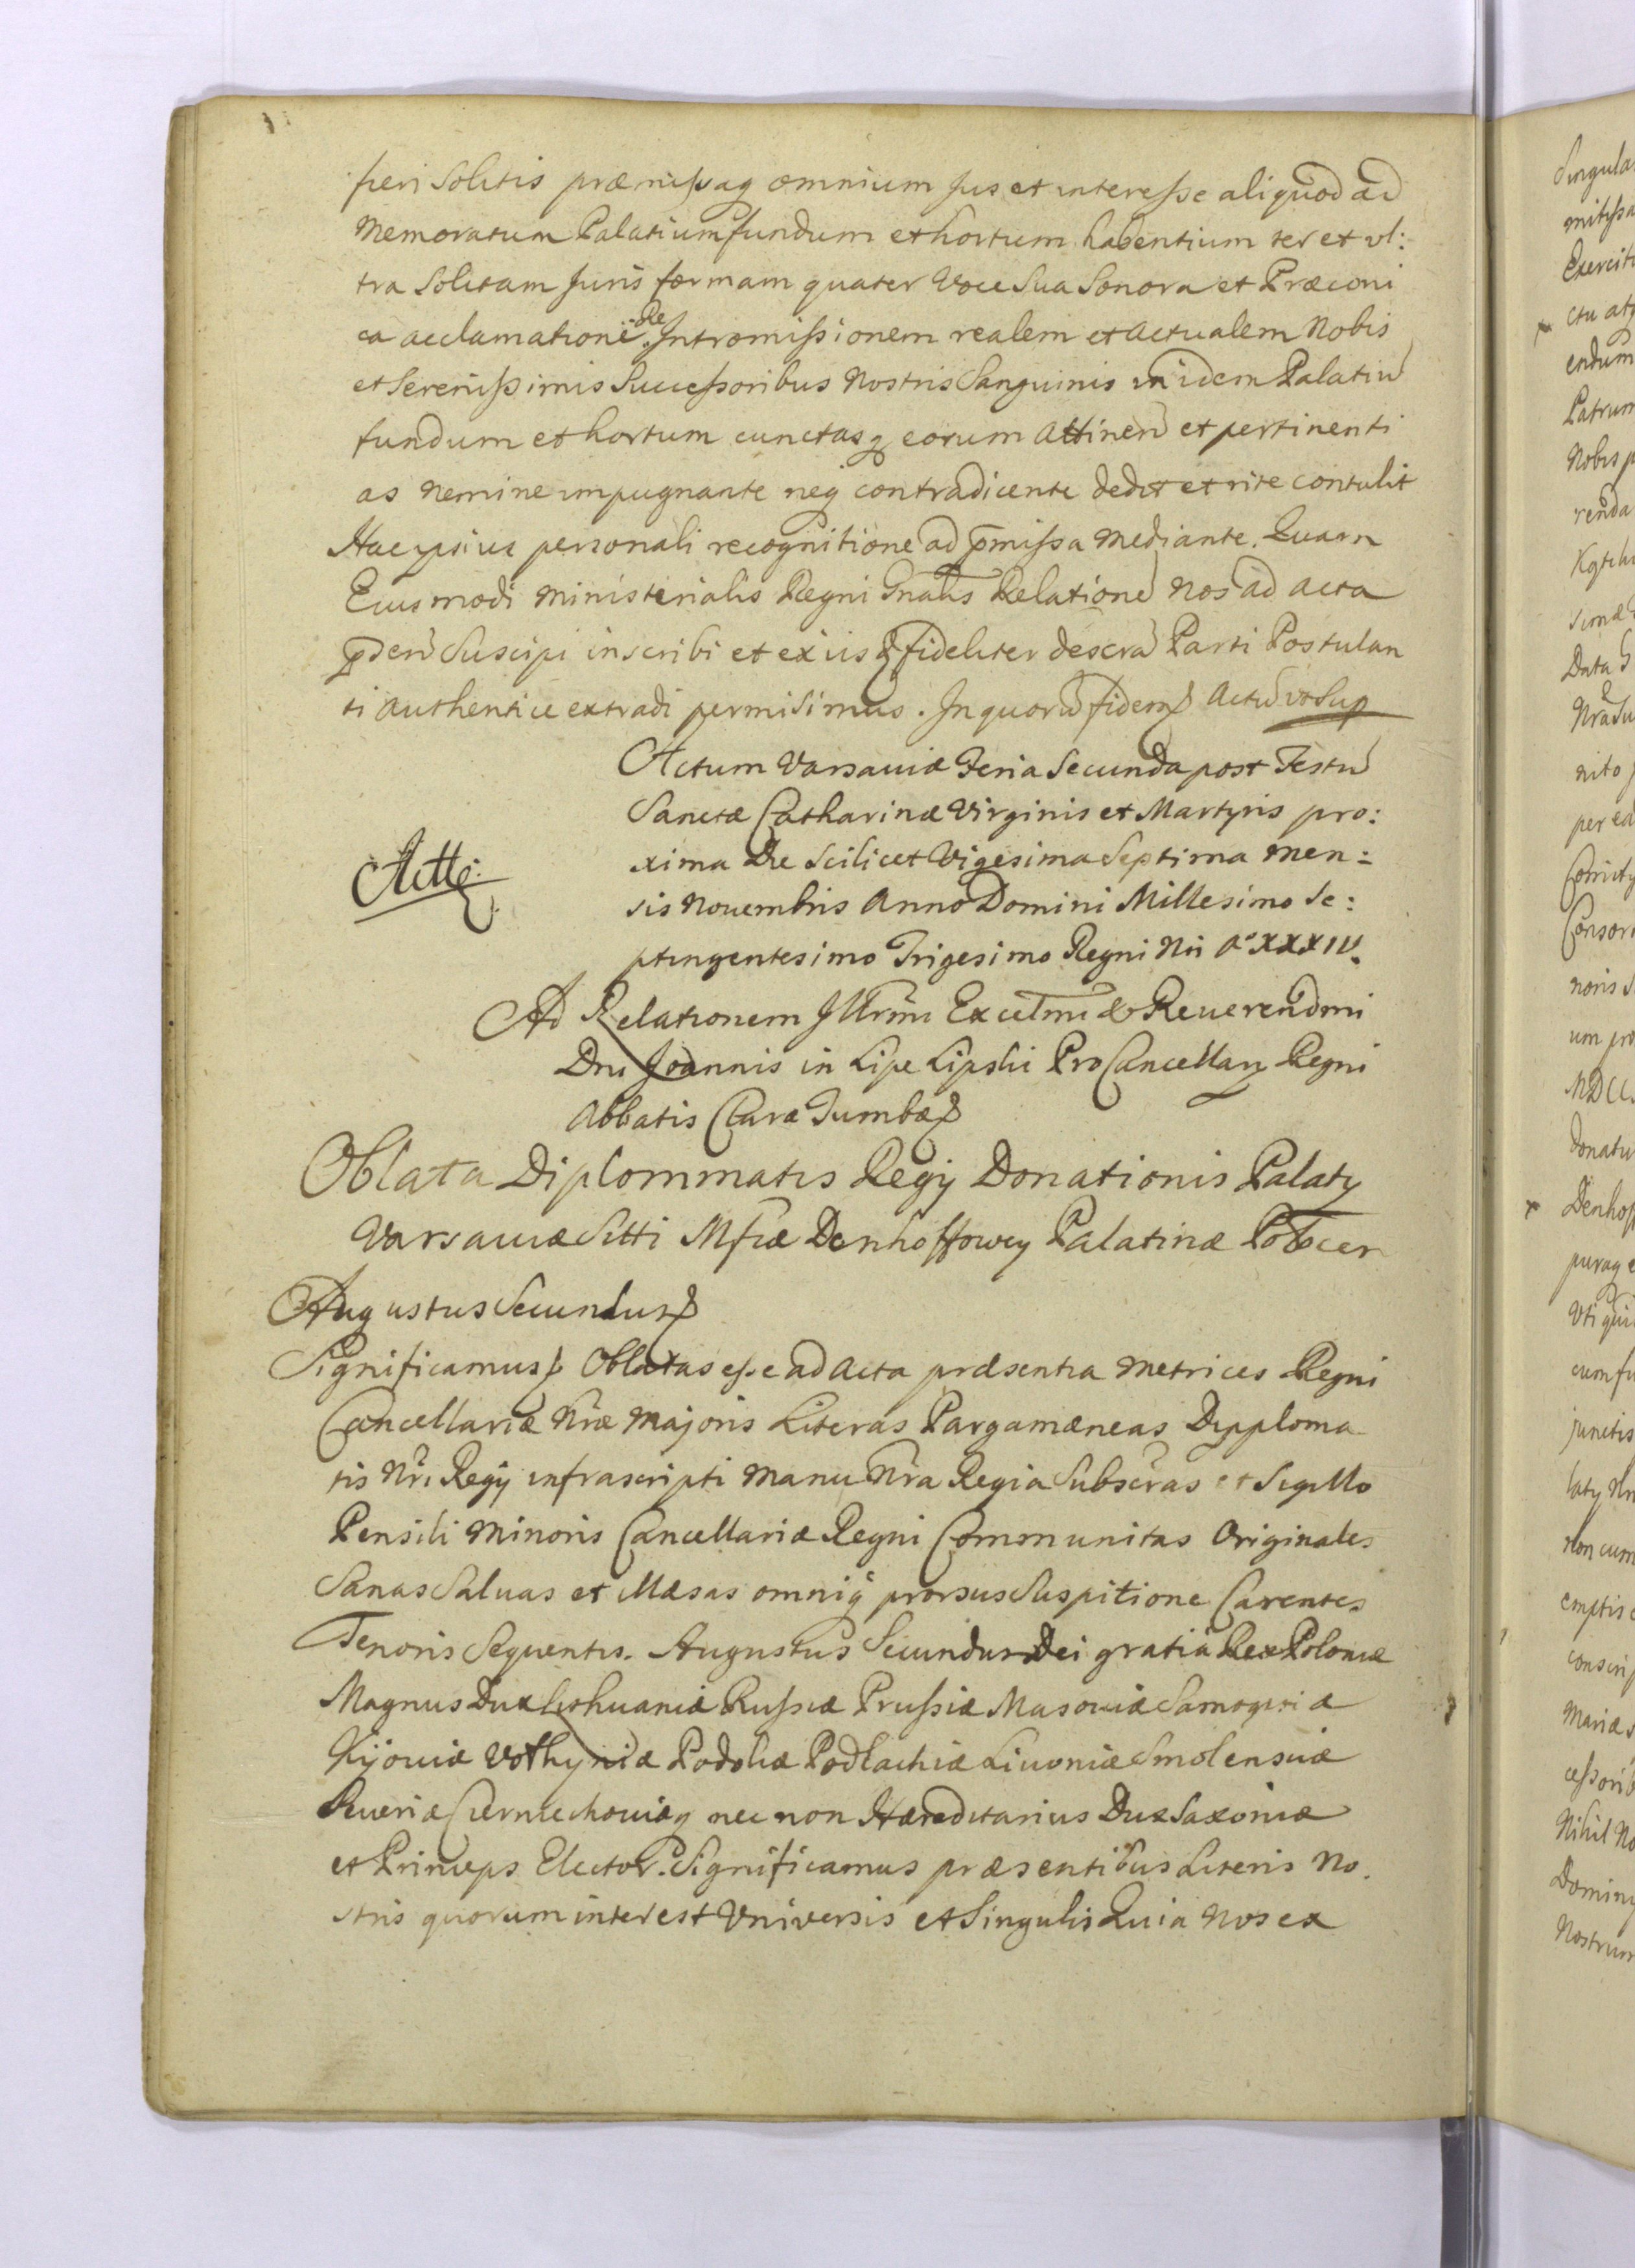 fieri solitis præmissaq omnium Jus et interesse aliquod ad
Memoratum Palatium fundum et hortum habentium ter et vl:
tra solitam Juris formam quater Voce Sua Sonora et Præconi
ca acclamatione de Intromissionem realem et actualem Nobis
et Serenissimis Successoribus Nostris Sanguinis in idem Palatiu
fundum et hortum cunctasq eorum Attinen et pertinenti
as Nemine impugnante neq contradicente dedit et rite contulit
Hac ipsius personali recognitione ad pmissa Mediante. Quam
Eiusmodi Ministerialis Regni Gnalis Relatione Nos ad acta
pden Suscipi inscribi et ex iis fideliter descra Parti Postulan
ti authentice extradi permisimus. In quoru fidem Actu ut Sup
Actum Varsauiæ Feria Secunda post Festu
Sanctæ Catharinæ Virginis et Martyris pro:
xima Die Scilicet Vigesima Septima Men:
sis Nouembris Anno Domini Millesimo Se:
ptingentesimo Trigesimo Regni Nri Ao XXXIV.
Ad Relationem Illrmi Excelmi & Reuerendmi
Dni Joannis in Lipe Lipski ProCancellary Regni
Abbatis Claræ Tumbæ
Oblata Diplommatis Regij Donationis Palaty
Varsauiæ Sitti Mfcæ Denhoffowey Palatinæ Polocen
Augustus Secundus
Significamus Oblatas esse ad Acta præsentia Metrices Regni
Cancellariæ Nræ Majoris Literas Pargamæneas Dypploma
tis Nri Regij infrascripti Manu Nra Regia Subscras et Sigillo
Pensili Minoris Cancellariæ Regni Communitas Originales
Sanas Saluas et Illæsas omniq prorsus Suspitione Carentes
Tenoris Sequentis. Augustus Secundus Dei gratia Rex Poloniæ
Magnus Dux Lithuaniæ Russiæ Prussiæ Masouiæ Samogitiæ
Kijouiæ Volhyniæ Podoliæ Podlachiæ Liuoniæ Smolensciæ
Seueriæ Czerniechouiæq nec non Hæreditarius Dux Saxoniæ
et Princeps Elector. Significamus præsentibus Literis No.
stris quorum interest Vniversis et Singulis Quia Nos ex